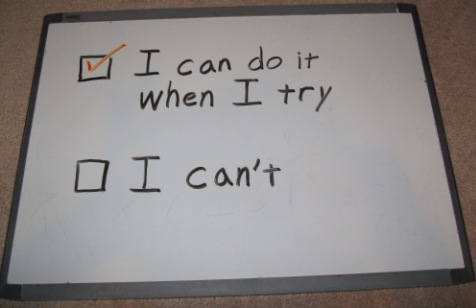 I can do it
when I try
I can't